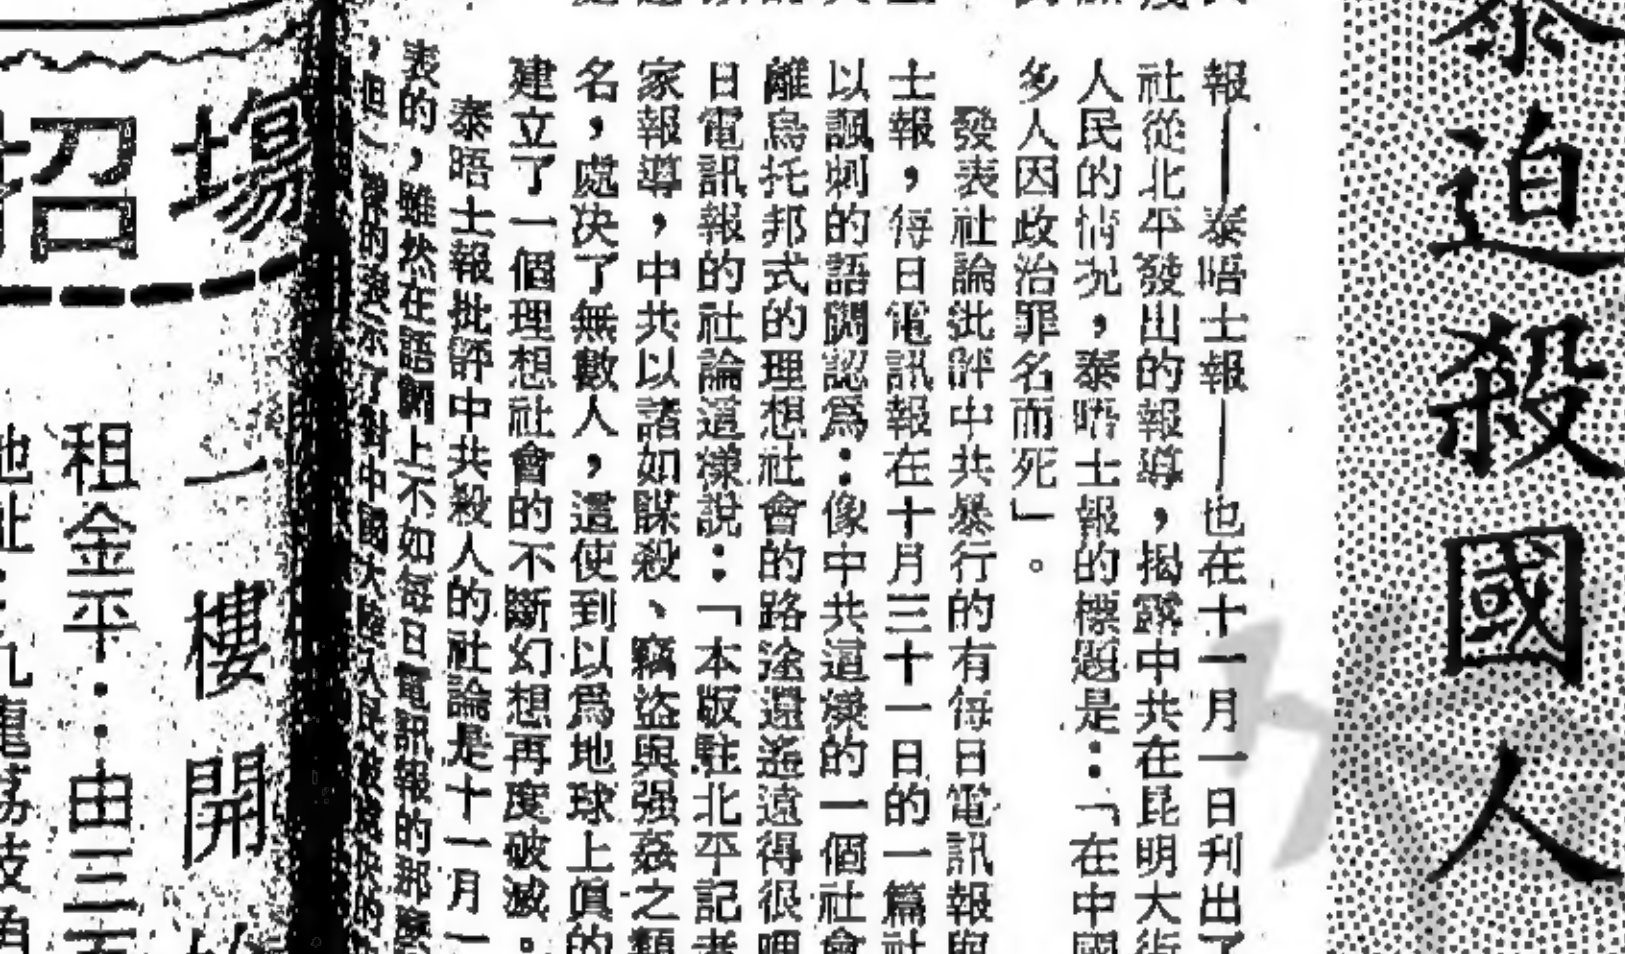 泰迫殺國人
報——泰晤士報——也在十一月一日刊出了
社從北平發出的報導，揭露中共在昆明大街
人民的情况，泰晤士報的標題是：「在中國
多人因政治罪名而死」。
發表社論批評中共暴行的有每日電訊報與
士報，每日電訊報在十月三十一日的一篇社
以諷刺的語調認爲：像中共這樣的一個社會
離烏托邦式的理想社會的路途還遙遠得很哩
日電訊報的社論這樣說：「本版駐北平記者
家報導，中共以諸如謀殺、竊盜與强姦之類
名，處决了無數人，這使到以爲地球上眞的
建立了一個理想社會的不斷幻想再度破滅：
泰晤士報批評中共殺人的社論是十一月一
表的，雖然在語調上不如每日電訊報的那麼
場一樓開
招
租金平：由三五